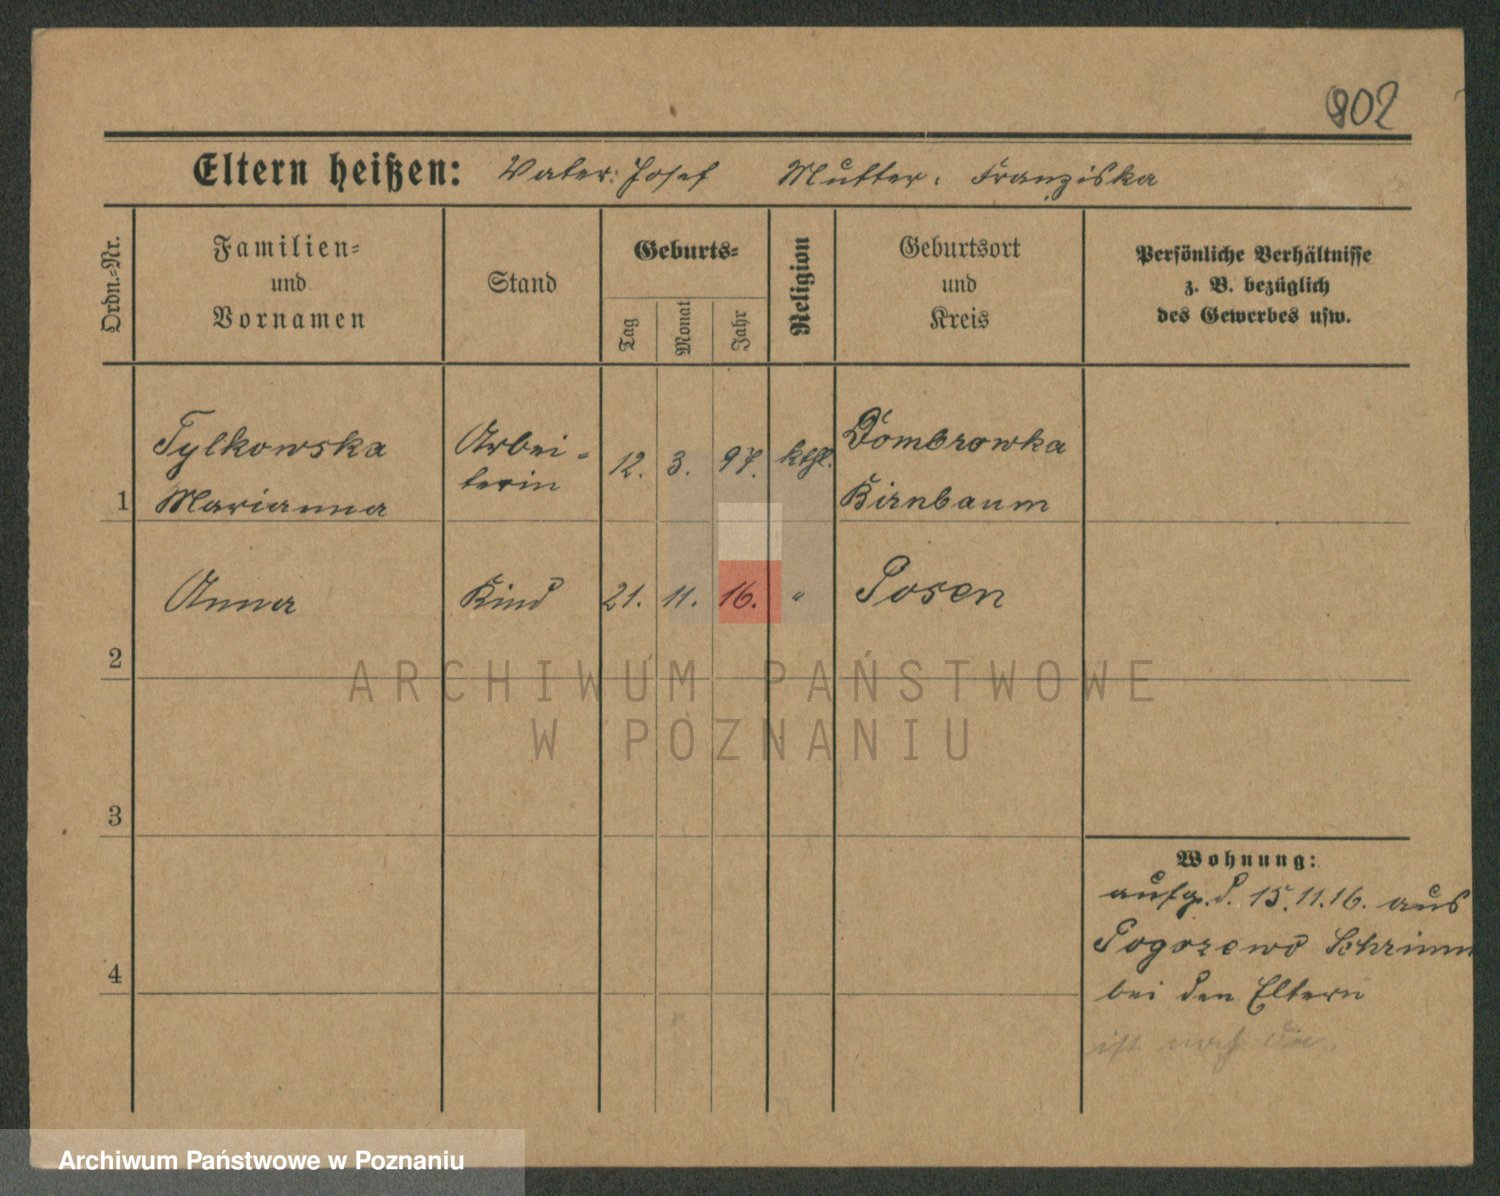 802
Eltern heißen: Vater: Josef Mutter: Franziska
Ordn.-Nr.
Familien-
und
Vornamen
Stand
Geburts-
Tag
Monat
Jahr
Religion
Geburtsort
und
Kreis
Persönliche Verhältnisse
z. B. bezüglich
des Gewerbes usw.
1
Tylkowska
Marianna
Arbei-
terin
12. 3. 97. kthl.
Dombrowka
Birnbaum
2
Anna
Kind
21. 11. 16. "
Posen
3
4
Wohnung:
aufg. d. 15.11.16. aus
Pogorzewo Schrimm
bei den Eltern
ist noch
ARCHIWUM PAŃSTWOWE
W POZNANIU
Archiwum Państwowe w Poznaniu